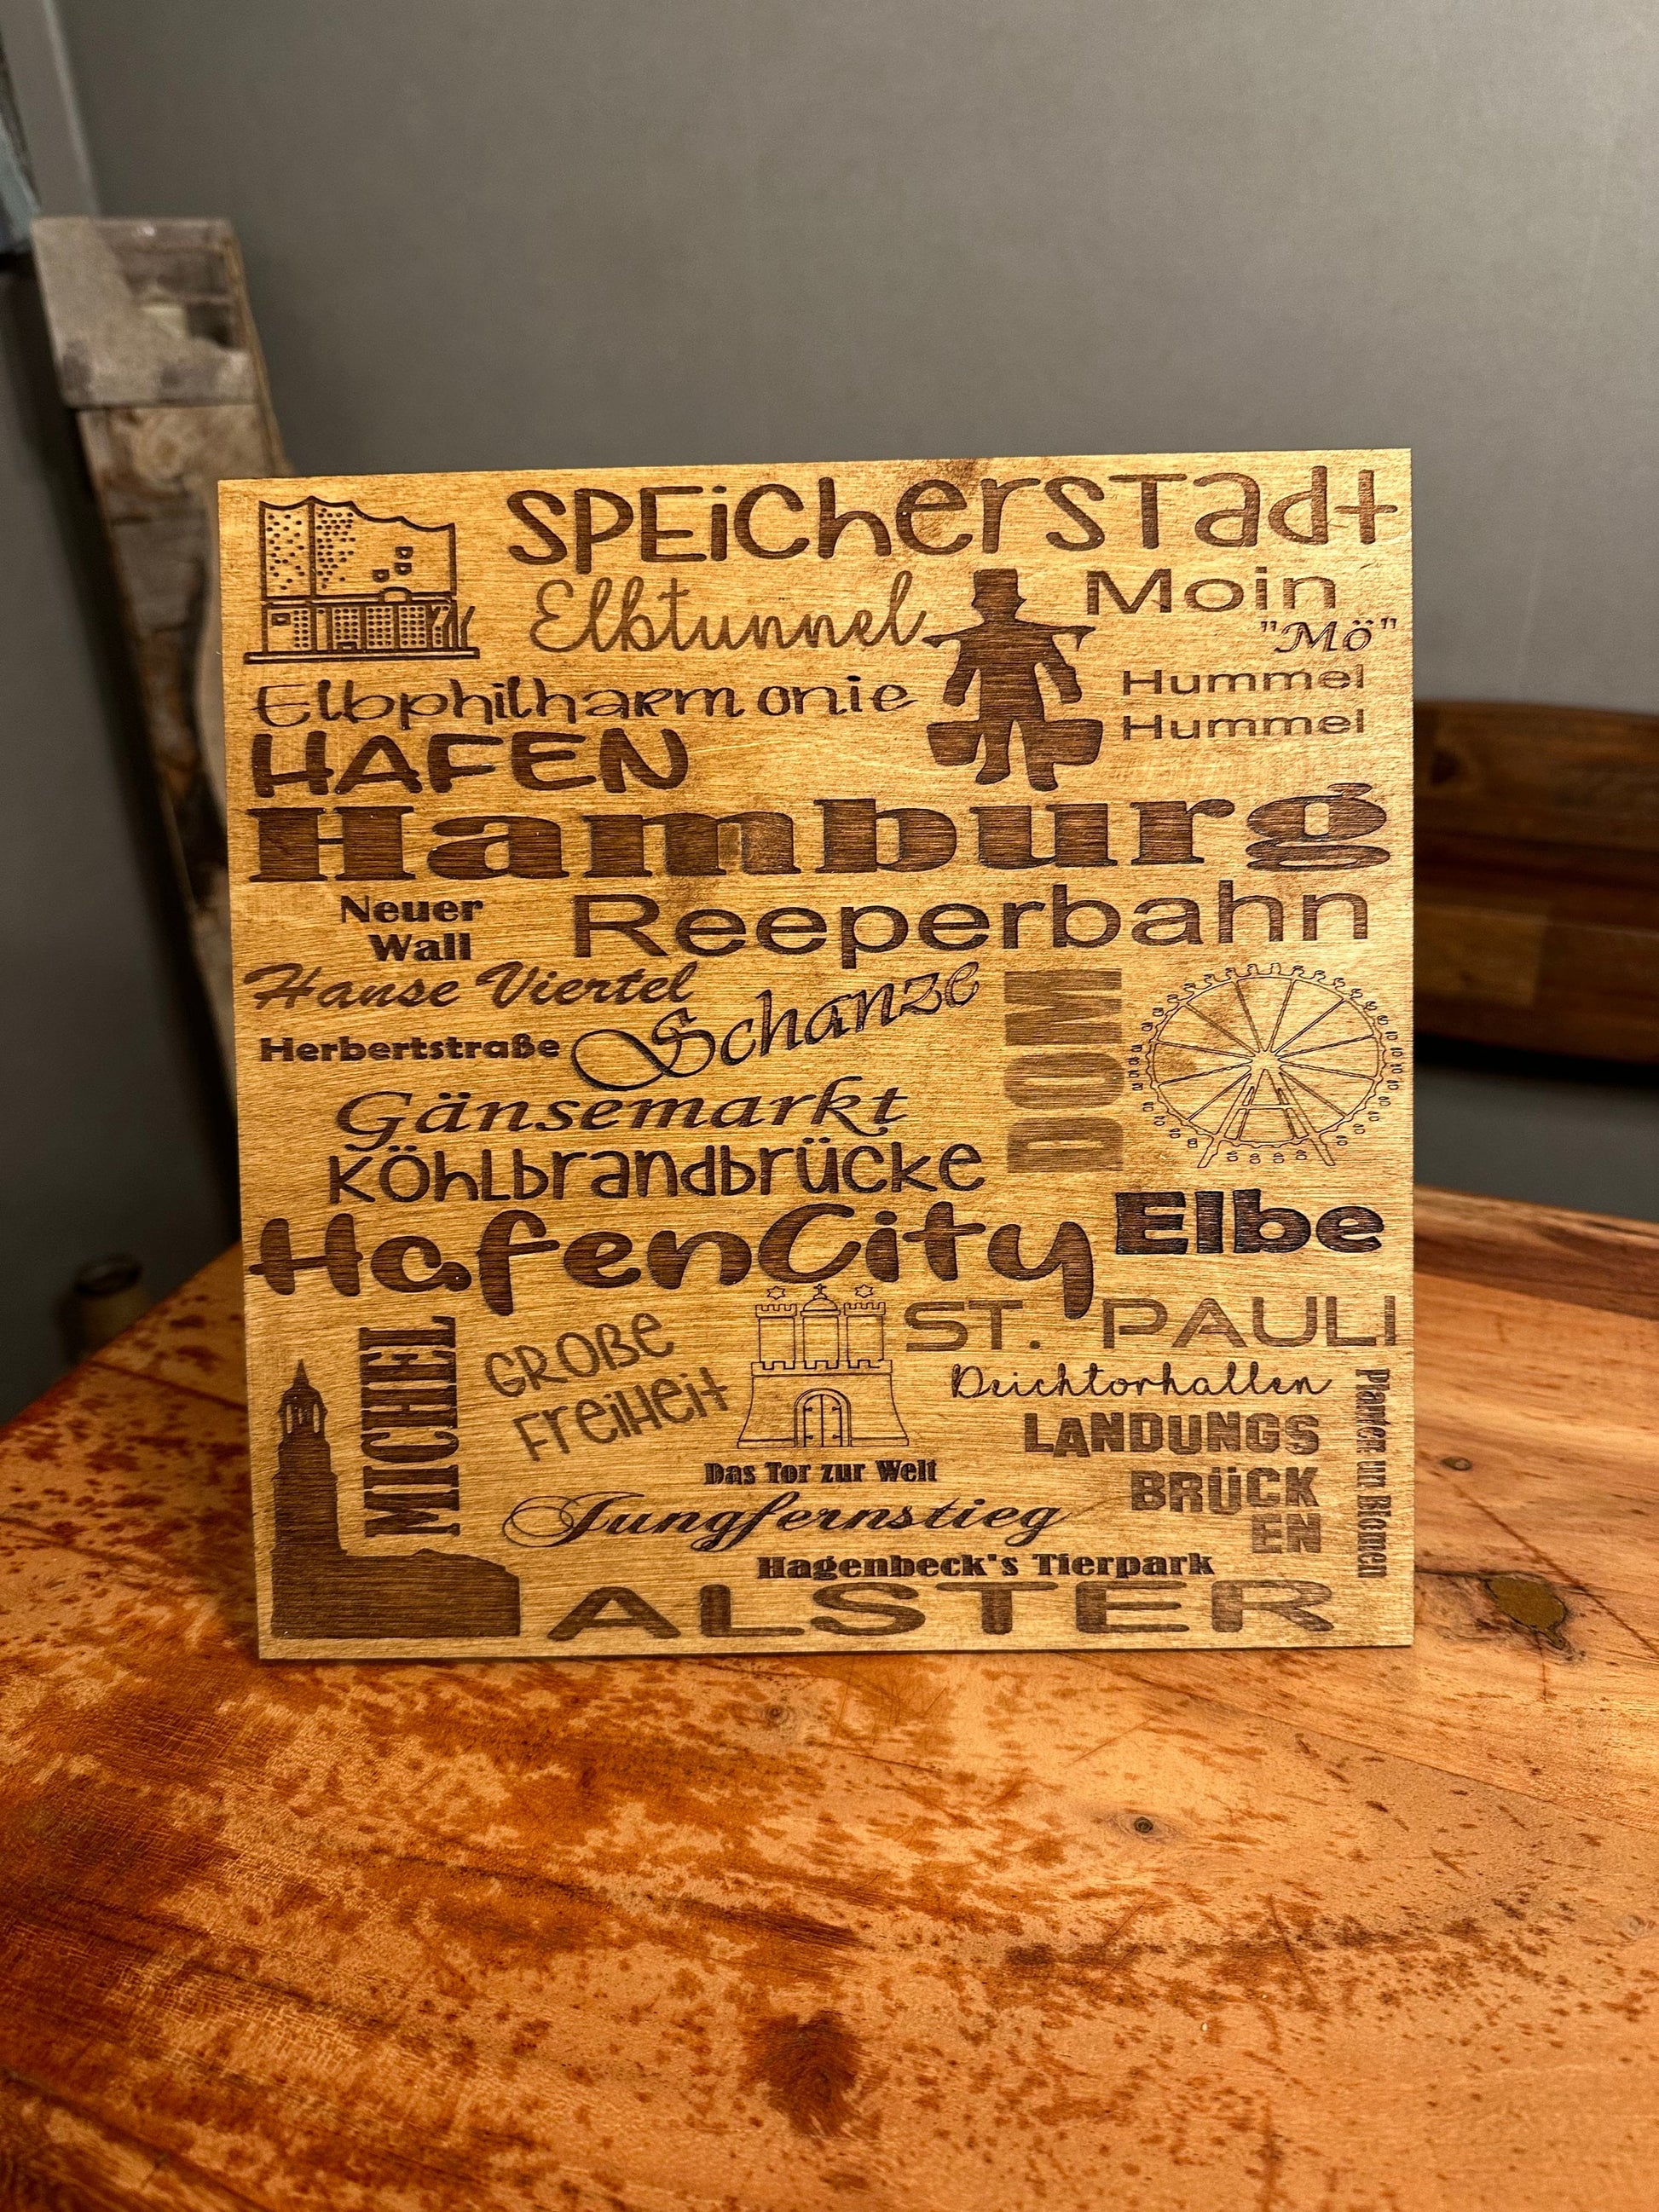 SPEicherSTadt
Elbtunnel
Moin
"Mö"
Elbphilharmonie
Hummel
Hummel
HAFEN
Hamburg
Neuer
Wall
Reeperbahn
Hanse Viertel
Schanze
DOM
Herbertstraße
Gänsemarkt
Köhlbrandbrücke
HafenCity
Elbe
MICHEL
GROßE
FreiHeit
ST. PAULI
Deichtorhallen
LANDUNGS
BRÜCK
EN
Planten un Blomen
Das Tor zur Welt
Jungfernstieg
Hagenbeck's Tierpark
ALSTER